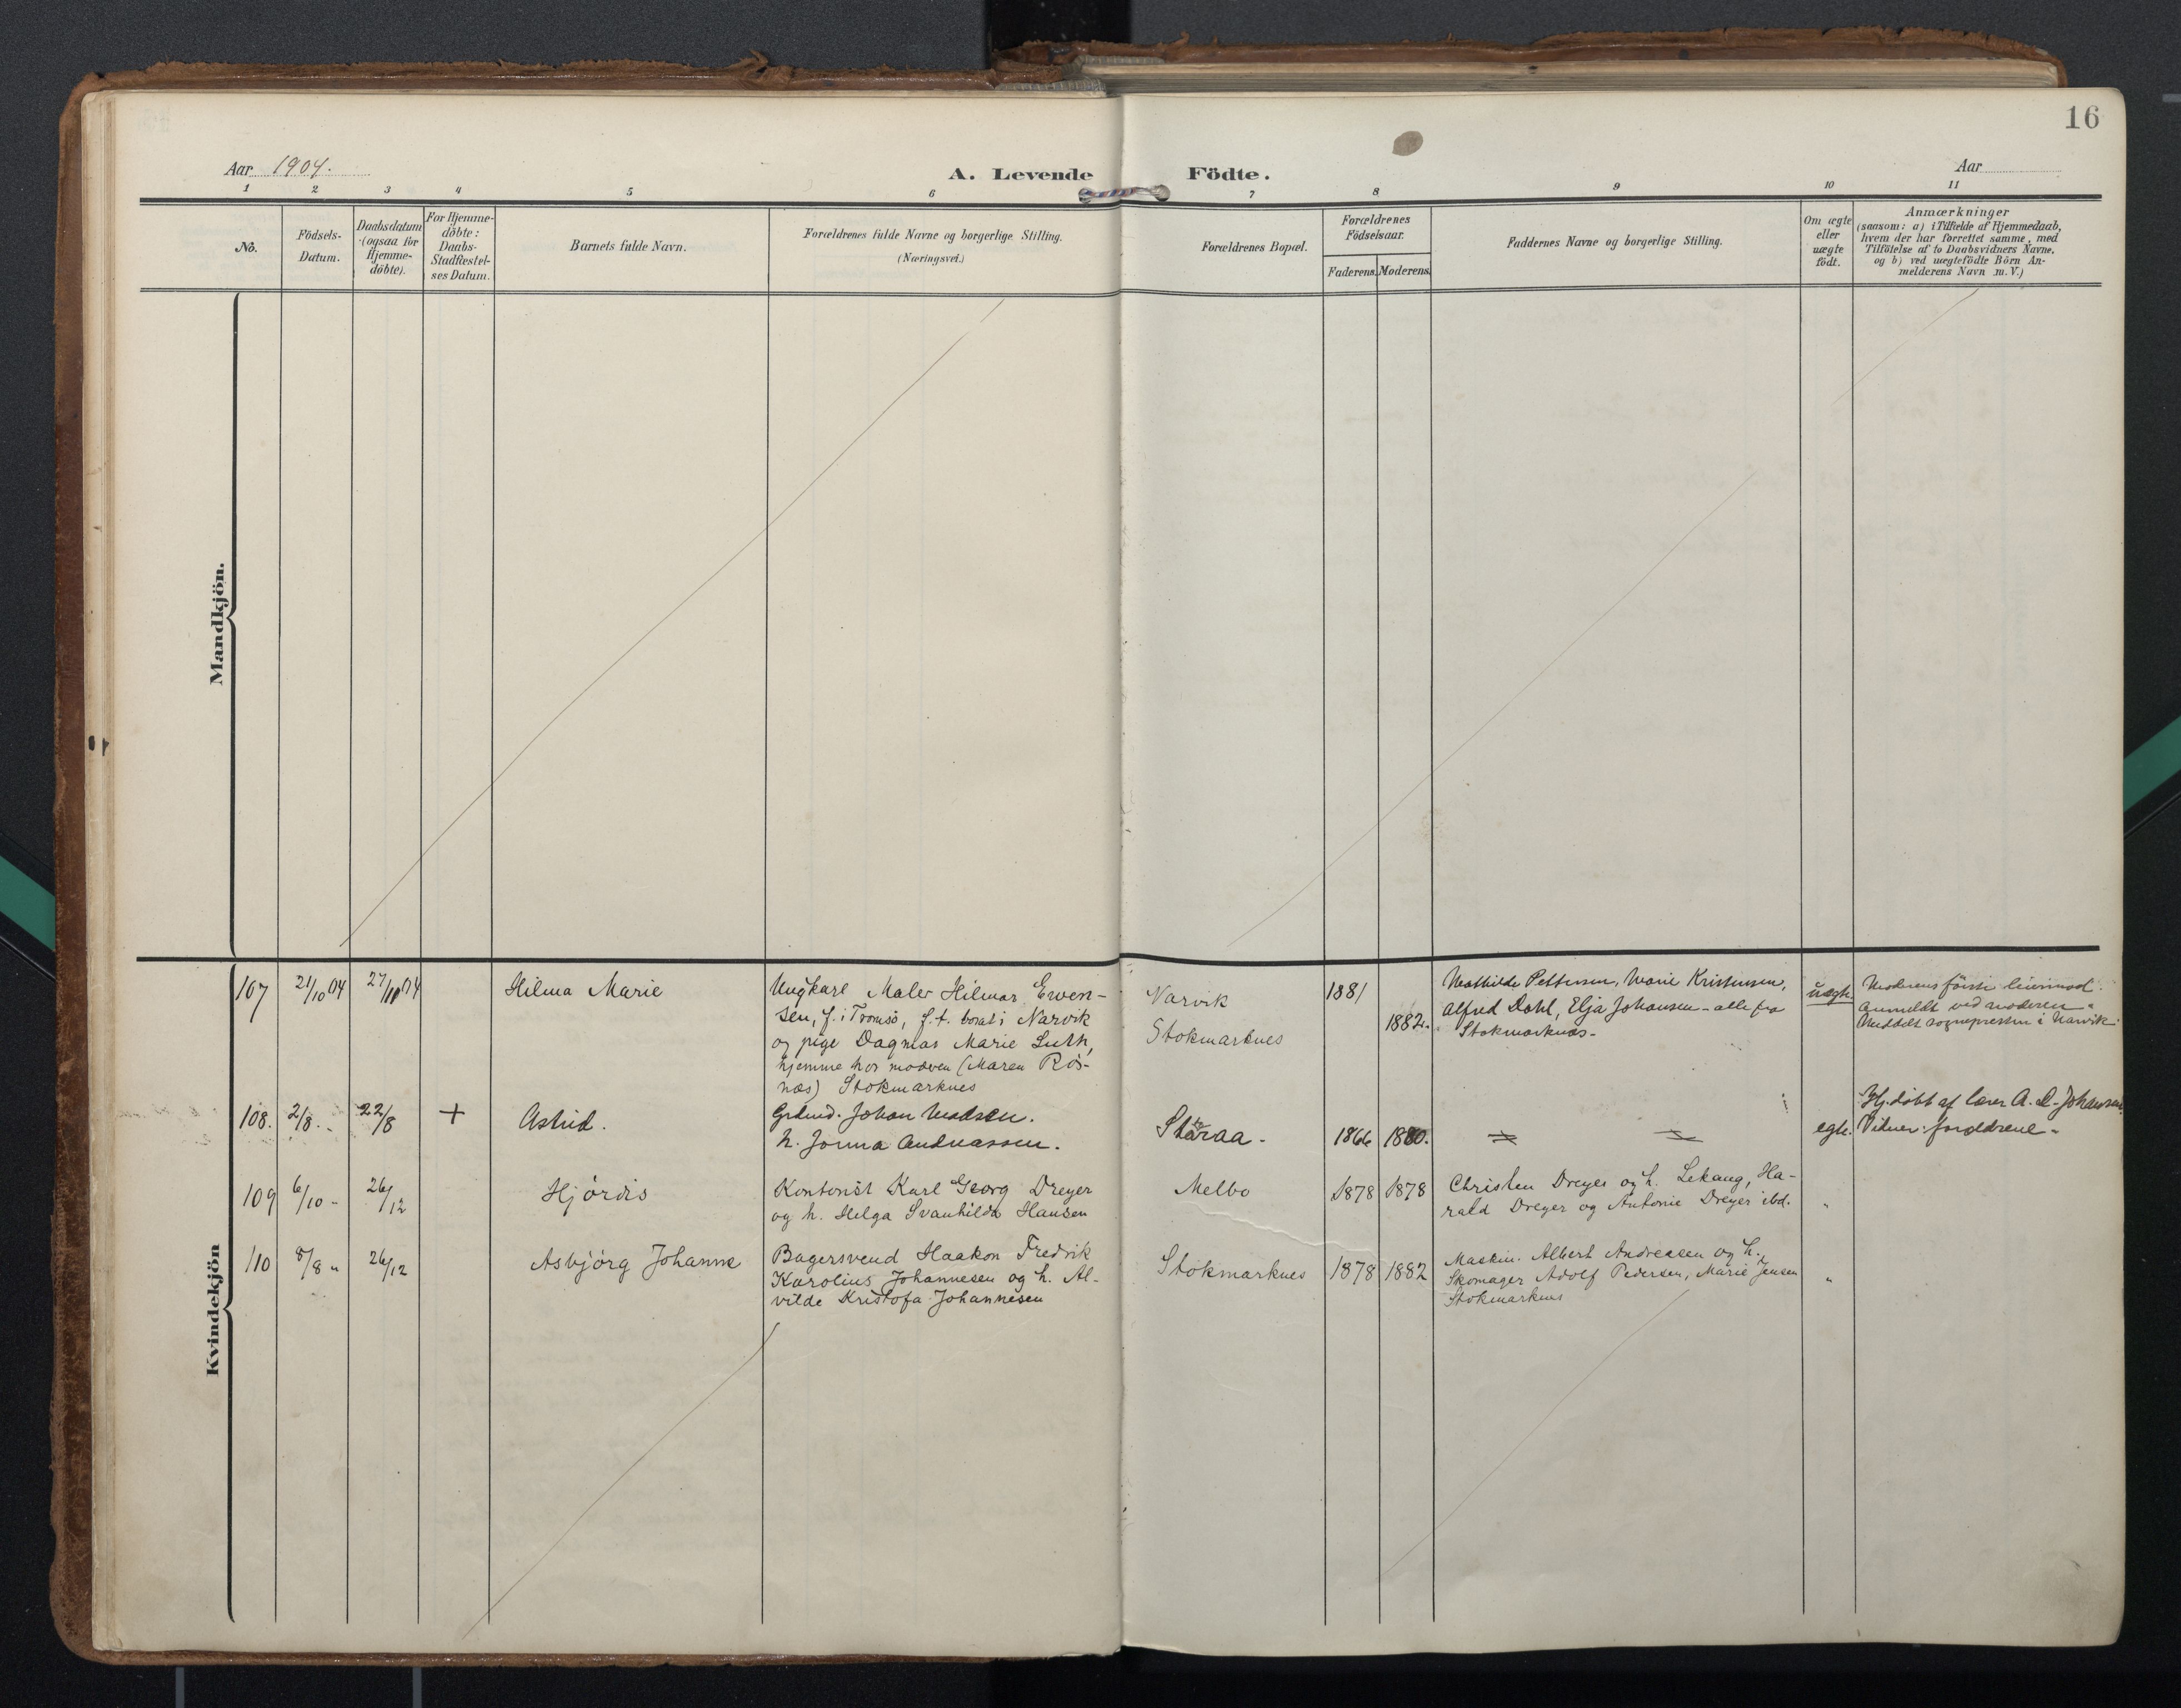 16
Aar 1904.
A. Levende Födte.
Aar
1 2 3 4 5 6 7 8 9 10 11
No.
Födsels-
Datum.
Daabsdatum
(ogsaa for
Hjemme-
döbte).
For Hjemme-
döbte:
Daabs-
Stadfæstel-
ses Datum.
Barnets fulde Navn.
Forældrenes fulde Navne og borgerlige Stilling.
(Næringsvei.)
Forældrenes Bopæl.
Forældrenes
Födselsaar.
Faderens.
Moderens.
Faddernes Navne og borgerlige Stilling.
Om ægte
eller
uægte
födt.
Anmærkninger
(saasom: a) i Tilfælde af Hjemmedaab,
hvem der har forrettet samme, med
Tilföielse af to Daabsvidners Navne,
og b) ved uægtefödte Börn An-
melderens Navn m. V.)
Mandkjön.
Kvindekjön
107
21/10 04
27/11 04
Hilma Marie
Ungkarl Maler Hilmar Ewen-
sen, f. i Tromsö, f. t. bosat i Narvik
og pige Dagmar Marie Luth,
hjemme hos moderen (Maren Rös-
næs) Stokmarknes
Narvik
Stokmarknes
1881
1882.
Mathilde Pettersen, Marie Kristensen,
Alfred Dahl, Elja Johansen - alle fra
Stokmarknæs -
uægte.
Moderens förste leiermaal.
Anmeldt ved moderen.
Meddelt sognepresten i Narvik
108.
2/8 -
22/8
+
Astrid.
Grdmd. Johan Madsen.
h. Jonna Andreassen.
Staraa -
1866
1880.
egte.
Hj. döbt af lærer A. L. Johansen.
Vidner: forældrene -
109
6/10 -
26/12
Hjördis
Kontorist Karl Georg Dreyer
og h. Helga Svanhilda Hansen
Melbo
1878
1878
Christen Dreyer og h. Lekang, Ha-
rald Dreyer og Antonie Dreyer ibd.
"
110
8/8 "
26/12
Asbjörg Johanne
Bagersvend Haakon Fredrik
Karolius Johannesen og h. Al-
vilde Kristofa Johannesen
Stokmarknes
1878
1882
Maskin. Albert Andreasen og h.,
Skomager Adolf Pedersen, Marie Jensen
Stokmarknes
"